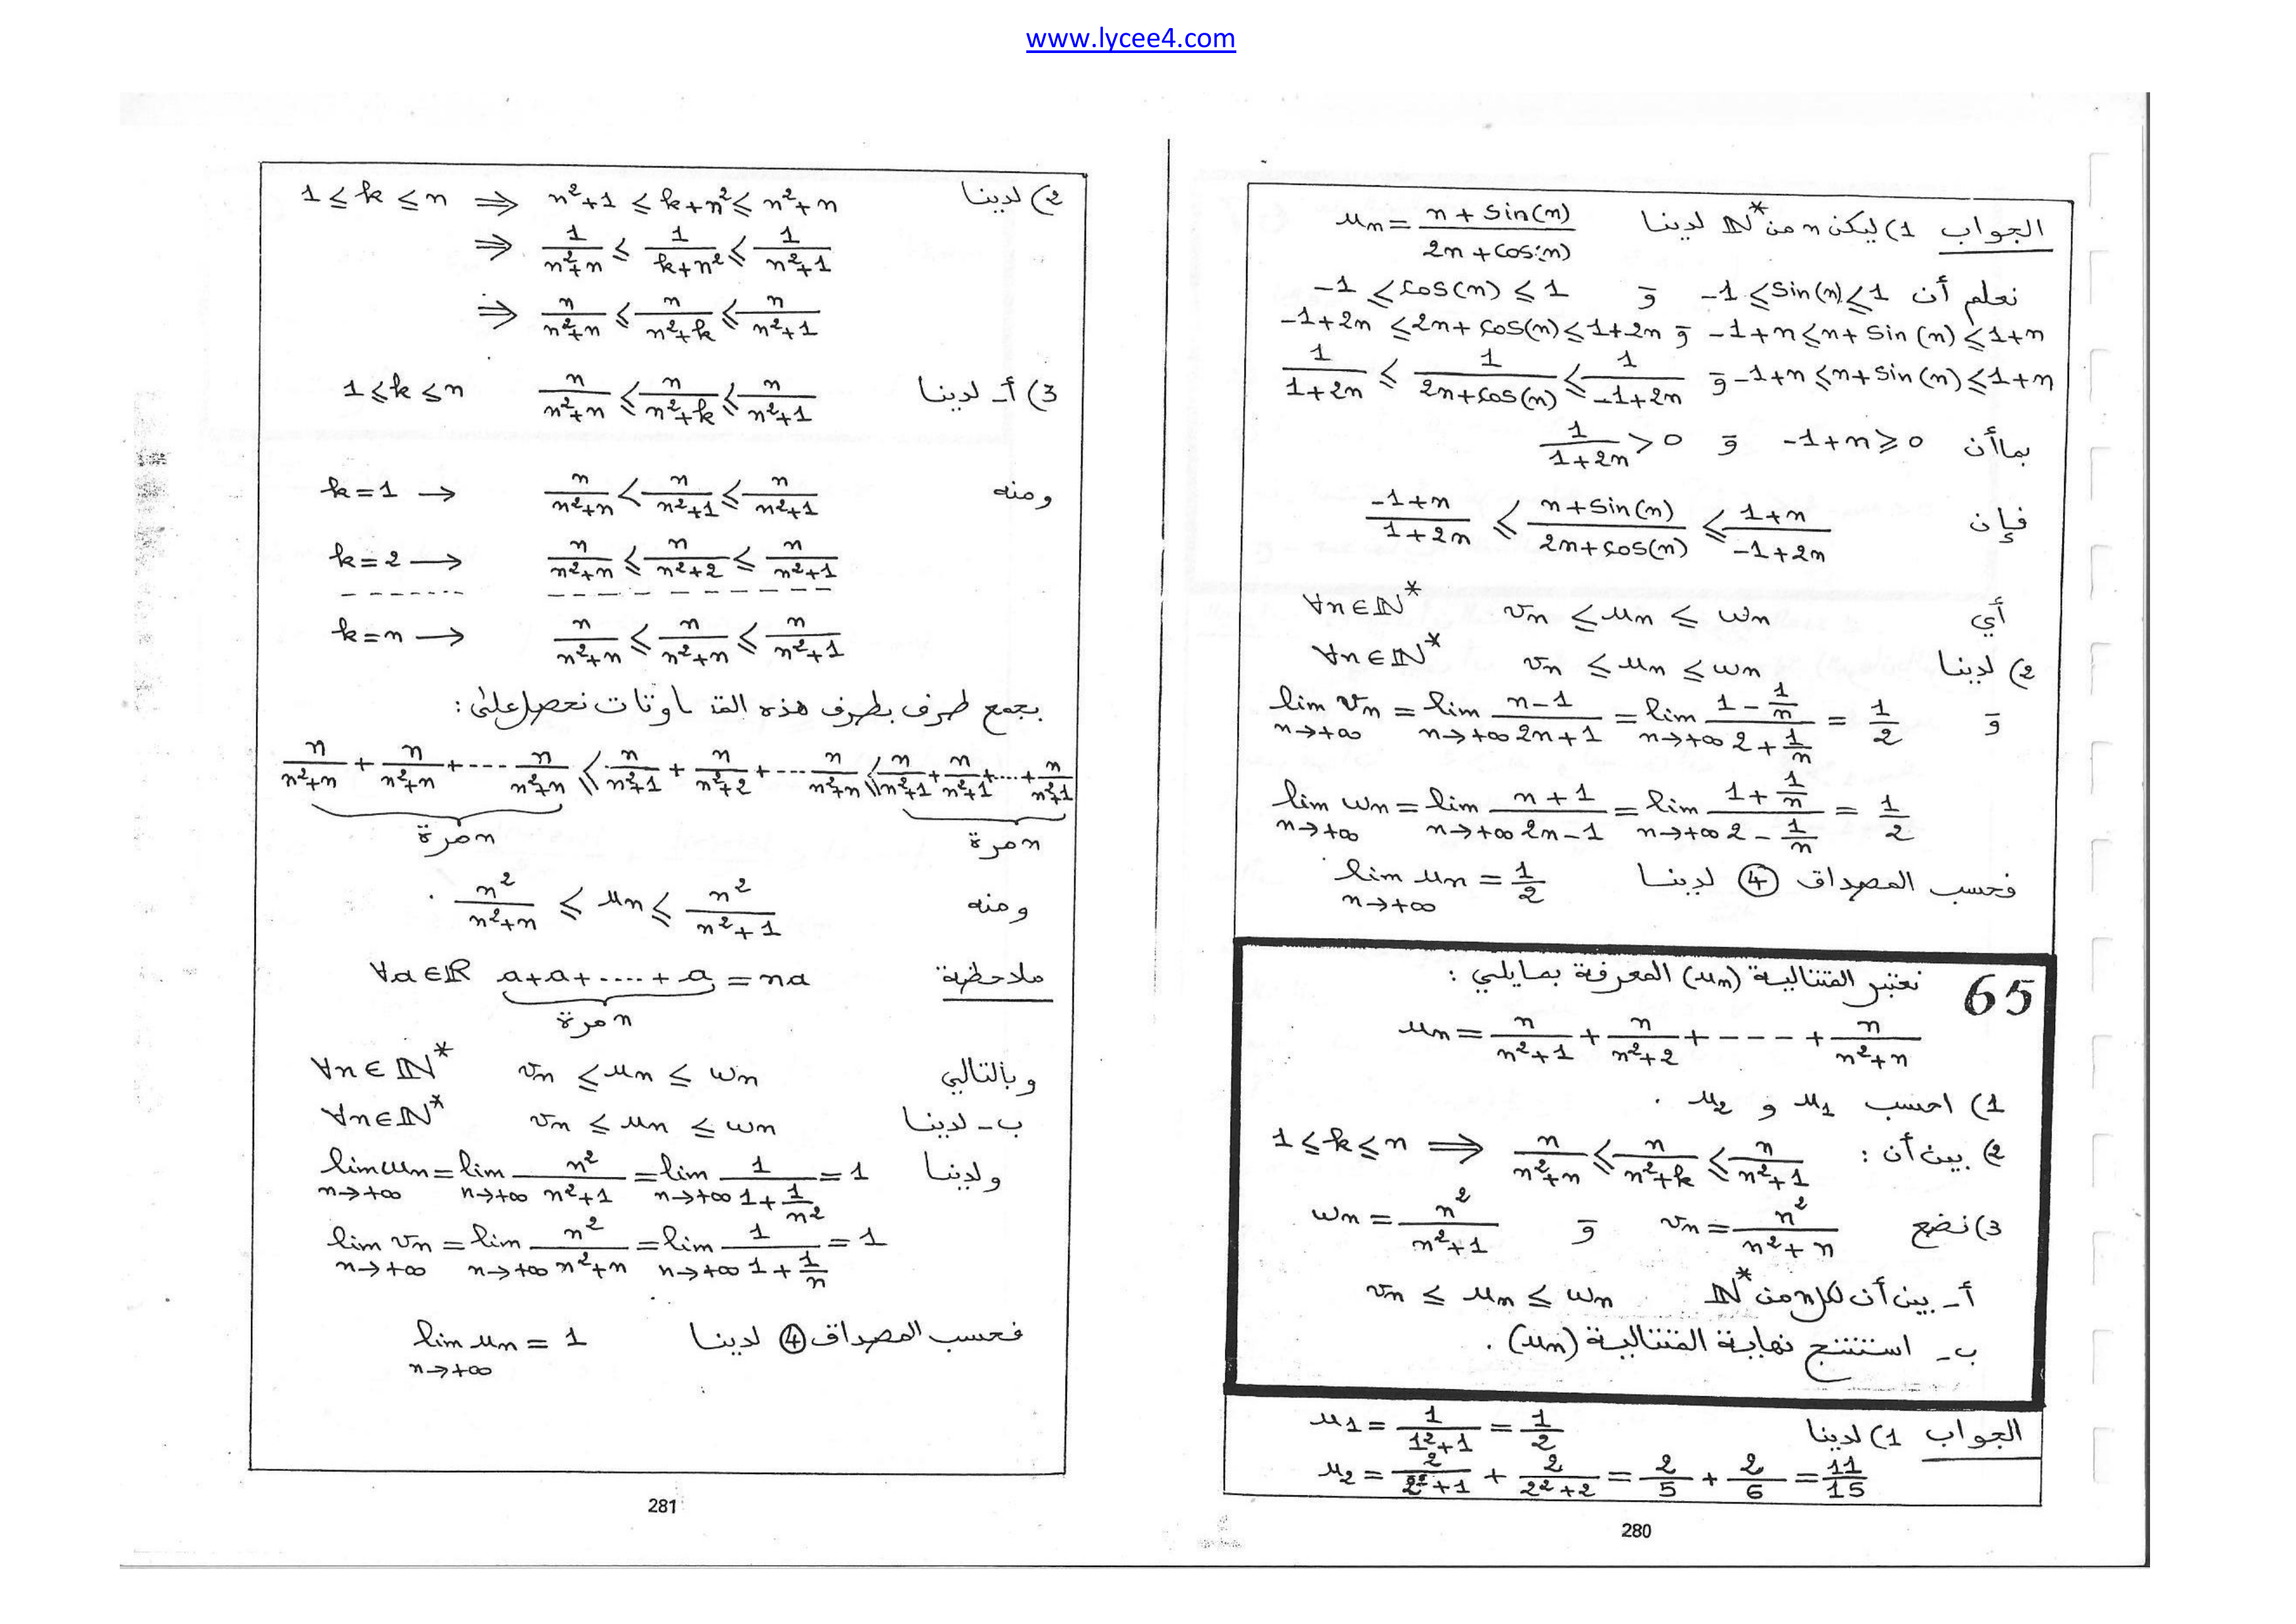 www.lycee4.com
الجواب 1) ليكن n من ℕ* لدينا uₙ = (n + sin(n))/(2n + cos(n))
نعلم أن -1 ≤ sin(n) ≤ 1 و -1 ≤ cos(n) ≤ 1
-1+n ≤ n+sin(n) ≤ 1+n و -1+2n ≤ 2n+cos(n) ≤ 1+2n
-1+n ≤ n+sin(n) ≤ 1+n و 1/(1+2n) ≤ 1/(2n+cos(n)) ≤ 1/(-1+2n)
بما أن -1+n ≥ 0 و 1/(1+2n) > 0
فإن (-1+n)/(1+2n) ≤ (n+sin(n))/(2n+cos(n)) ≤ (1+n)/(-1+2n)
أي vₙ ≤ uₙ ≤ wₙ ∀n∈ℕ*
2) لدينا vₙ ≤ uₙ ≤ wₙ ∀n∈ℕ*
و lim vₙ (n→+∞) = lim (n→+∞) (n-1)/(2n+1) = lim (n→+∞) (1 - 1/n)/(2 + 1/n) = 1/2
lim wₙ (n→+∞) = lim (n→+∞) (n+1)/(2n-1) = lim (n→+∞) (1 + 1/n)/(2 - 1/n) = 1/2
فحسب المصداق ④ لدينا lim uₙ (n→+∞) = 1/2
65 نعتبر المتتالية (uₙ) المعرفة بمايلي :
uₙ = n/(n²+1) + n/(n²+2) + ---- + n/(n²+n)
1) احسب u₁ و u₂ .
2) بين أن : 1 ≤ k ≤ n ⟹ n/(n²+n) ≤ n/(n²+k) ≤ n/(n²+1)
3) نضع vₙ = n²/(n²+n) و wₙ = n²/(n²+1)
أ- بين أن لكل n من ℕ* vₙ ≤ uₙ ≤ wₙ
ب- استنتج نهاية المتتالية (uₙ) .
الجواب 1) لدينا u₁ = 1/(1²+1) = 1/2
u₂ = 2/(2²+1) + 2/(2²+2) = 2/5 + 2/6 = 11/15
280
2) لدينا 1 ≤ k ≤ n ⟹ n²+1 ≤ k+n² ≤ n²+n
⟹ 1/(n²+n) ≤ 1/(k+n²) ≤ 1/(n²+1)
⟹ n/(n²+n) ≤ n/(n²+k) ≤ n/(n²+1)
3) أ- لدينا n/(n²+n) ≤ n/(n²+k) ≤ n/(n²+1) 1 ≤ k ≤ n
ومنه k=1 → n/(n²+n) < n/(n²+1) ≤ n/(n²+1)
k=2 → n/(n²+n) ≤ n/(n²+2) ≤ n/(n²+1)
------- --------------
k=n → n/(n²+n) ≤ n/(n²+n) ≤ n/(n²+1)
بجمع طرف بطرف هذه المتفاوتات نحصل على :
n/(n²+n) + n/(n²+n) + --- n/(n²+n) ≤ n/(n²+1) + n/(n²+2) + --- n/(n²+n) ≤ n/(n²+1) + n/(n²+1) + .... + n/(n²+1)
n مرة n مرة
ومنه n²/(n²+n) ≤ uₙ ≤ n²/(n²+1) .
ملاحظة a+a+....+a = na ∀a∈ℝ
n مرة
وبالتالي vₙ ≤ uₙ ≤ wₙ ∀n∈ℕ*
ب- لدينا vₙ ≤ uₙ ≤ wₙ ∀n∈ℕ*
ولدينا lim wₙ (n→+∞) = lim (n→+∞) n²/(n²+1) = lim (n→+∞) 1/(1 + 1/n²) = 1
lim vₙ (n→+∞) = lim (n→+∞) n²/(n²+n) = lim (n→+∞) 1/(1 + 1/n) = 1
فحسب المصداق ④ لدينا lim uₙ (n→+∞) = 1
281